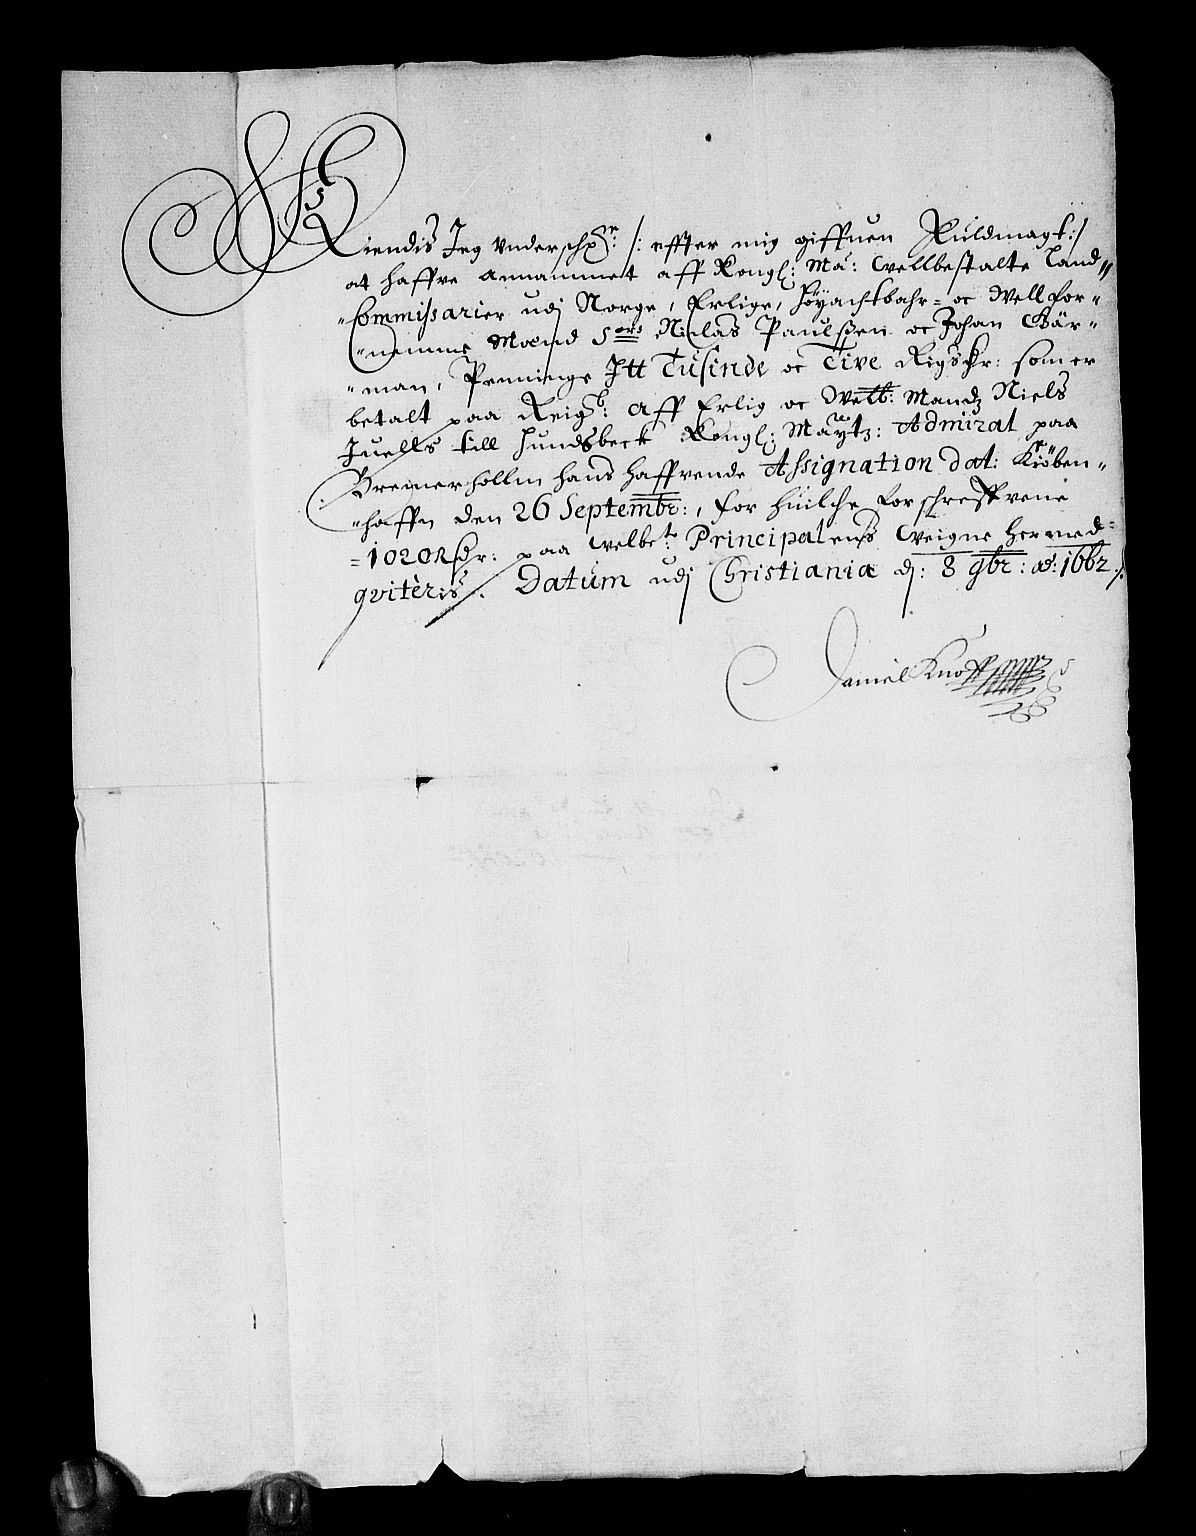 Kiendis Jeg Underschr: /: effter mig giffuen Fuldmagt :/
at haffve annammet aff Kongl: Ma: Vellbestalte Land=
=Commissarier udj Norge, Erlige, Höyachtbahr= oc Vellfor=
=nemme Mænd Sers Niclas Paulssen oc Johan Gär=
=man, Penninge Itt Tusinde oc Tive Rigsdr: som er
betalt paa Reigsb: aff Erlig oc Welb: Mandz Niels
Juells till Hundsbeck Kongl: Maytz: Admiral paa
Bremerhollm hans haffvende Assignation dat: Kiöben=
=haffn den 26 Septembr:, for huilche forschreffvene
=1020 Rdr: paa velbe: Principalens Veigne hermed=
qviteris. Datum udj Christiania dj: 8 9br: ao: 1662 ./.
Daniel Knoff